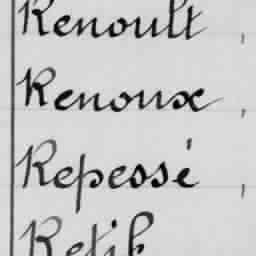 Renoult,
Renoux,
Repessé,
Retik